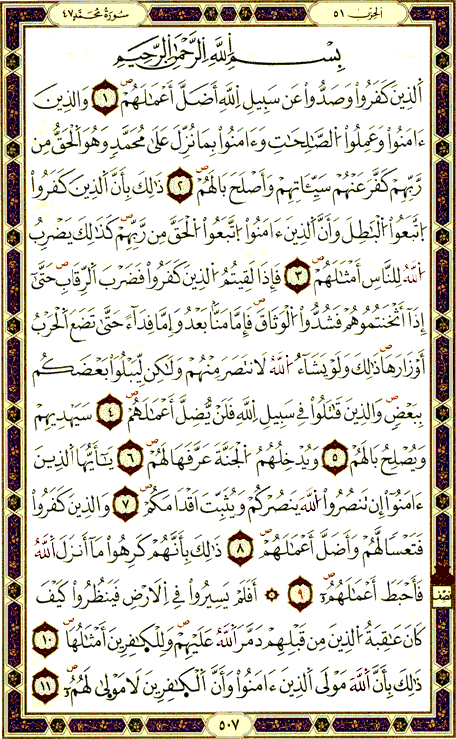 الحزب ٥١
سورة محمد ٤٧
بِسْمِ اللَّهِ الرَّحْمَٰنِ الرَّحِيمِ
اَلذِينَ كَفَرُواْ وَصَدُّواْ عَن سَبِيلِ اِللَّهِ أَضَلَّ أَعْمَٰلَهُمْ ۝١ وَالذِينَ
ءَامَنُواْ وَعَمِلُواْ اُلصَّٰلِحَٰتِ وَءَامَنُواْ بِمَا نُزِّلَ عَلَىٰ مُحَمَّدٍ وَهُوَ اَلْحَقُّ مِن
رَّبِّهِمْ كَفَّرَ عَنْهُمْ سَيِّـَٔاتِهِمْ وَأَصْلَحَ بَالَهُمْ ۝٢ ذَٰلِكَ بِأَنَّ اَلذِينَ كَفَرُواْ
اُ۪تَّبَعُواْ اُلْبَٰطِلَ وَأَنَّ اَلذِينَ ءَامَنُواْ اُ۪تَّبَعُواْ اُلْحَقَّ مِن رَّبِّهِمْ كَذَٰلِكَ يَضْرِبُ
اُللَّهُ لِلنَّاسِ أَمْثَٰلَهُمْ ۝٣ فَإِذَا لَقِيتُمُ اُلذِينَ كَفَرُواْ فَضَرْبَ اَلرِّقَابِ حَتَّىٰٓ
إِذَآ أَثْخَنتُمُوهُمْ فَشُدُّواْ اُلْوَثَاقَ فَإِمَّا مَنّاَۢ بَعْدُ وَإِمَّا فِدَآءً حَتَّىٰ تَضَعَ اَلْحَرْبُ
أَوْزَارَهَا ذَٰلِكَ وَلَوْ يَشَآءُ اُللَّهُ لَانتَصَرَ مِنْهُمْ وَلَٰكِن لِّيَبْلُوَاْ بَعْضَكُم
بِبَعْضٍ وَالذِينَ قَٰتَلُواْ فِي سَبِيلِ اِللَّهِ فَلَنْ يُّضِلَّ أَعْمَٰلَهُمْ ۝٤ سَيَهْدِيهِمْ
وَيُصْلِحُ بَالَهُمْ ۝٥ وَيُدْخِلُهُمُ اُلْجَنَّةَ عَرَّفَهَا لَهُمْ ۝٦ يَٰٓأَيُّهَا اَلذِينَ
ءَامَنُوٓاْ إِن تَنصُرُواْ اُللَّهَ يَنصُرْكُمْ وَيُثَبِّتَ اَقْدَامَكُمْ ۝٧ وَالذِينَ كَفَرُواْ
فَتَعْساً لَّهُمْ وَأَضَلَّ أَعْمَٰلَهُمْ ۝٨ ذَٰلِكَ بِأَنَّهُمْ كَرِهُواْ مَآ أَنزَلَ اَللَّهُ
فَأَحْبَطَ أَعْمَٰلَهُمْ ۝٩ ۞ أَفَلَمْ يَسِيرُواْ فِي اِلَارْضِ فَيَنظُرُواْ كَيْفَ
كَانَ عَٰقِبَةُ اُلذِينَ مِن قَبْلِهِمْ دَمَّرَ اَللَّهُ عَلَيْهِمْ وَلِلْكٰ۪فِرِينَ أَمْثَٰلُهَا ۝١٠
ذَٰلِكَ بِأَنَّ اَللَّهَ مَوْلَى اَلذِينَ ءَامَنُواْ وَأَنَّ اَلْكٰ۪فِرِينَ لَا مَوْلَىٰ لَهُمْ ۝١١
نصف
٥٠٧